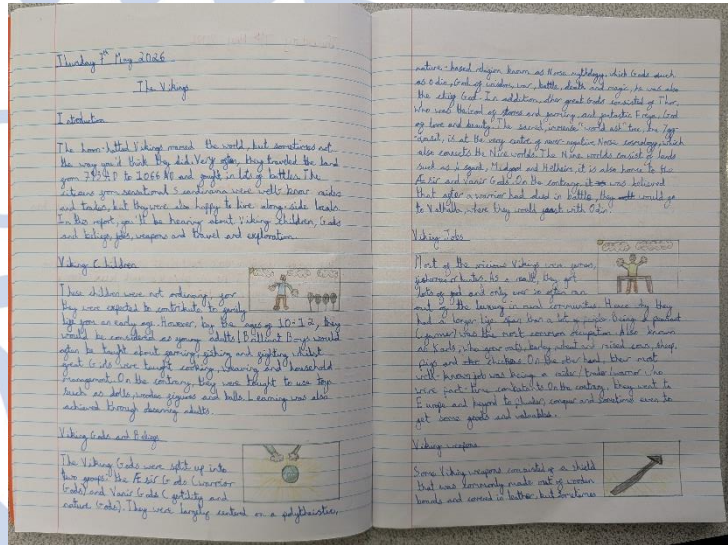 Thursday 7th May 2026
The Vikings
Introduction
The horn-hatted Vikings roamed the world, but sometimes not
the way you'd think they did. Very often, they traveled the land
from 793AD to 1066AD and fought in lots of battles. The
citizens from sensational Scandinavia were well-know raiders
and traders, but they were also happy to live along-side locals.
In the report, you'll be hearing about Viking children, Gods
and beliefs, jobs, weapons and travel and exploration.
Viking Children
These children were not ordinary, for
they were expected to contribute to family
life from an early age. However, by the ages of 10-12, they
would be considered as young adults! Brilliant Boys would
often be taught about farming, fishing and fighting whilst
great Girls were taught cooking, weaving and household
management. On the contrary, they were thought to use toys
such as dolls, wooden figures and balls. Learning was also
achieved through observing adults.
Viking Gods and Beliefs
The Viking Gods were split up into
two groups: the Æsir Gods (warrior
Gods) and Vanir Gods (fertility and
nature Gods). They were largely centred on a polytheistic,
nature-based religion known as Norse mythology, which Gods such
as Odin, God of wisdom, war, battle, death and magic, he was also
the chief God. In addition, other great Gods consisted of Thor,
who was the God of storms and farming, and fantastic Freya, God
of love and beauty. The sacred, immense "world ash" tree, the Ygg-
drasil, is at the very centre of never-negative Norse cosmology, which
also connects the Nine worlds. The Nine worlds consist of lands
such as Asgard, Midgard and Helheim, it is also home to the
Æsir and Vanir Gods. On the contrary, it was believed
that after a warrior had died in battle, they would go
to Valhalla, where they would feast with Odin.
Viking Jobs
Most of the vicious Vikings were farmers,
fishermen or hunters. As a result, they got
lots of food and only ever so often ran
out of the luxury in rural communities. Hence why they
had a longer life span than a lot of people. Being a peasant
(farmer) was the most common occupation. Also known
as Karls, they grew oats, barley, wheat and raised cows, sheep,
pigs and chickens. On the other hand, their most
well-known job was being a raider/trader/warrior who
were part-time combats. On the contrary, they went to
Europe and beyond to plunder, conquer and sometimes even to
get some goods and valuables.
Viking weapons
Some Viking weapons consisted of a shield
that was commonly made out of wooden
boards and covered in leather, but sometimes